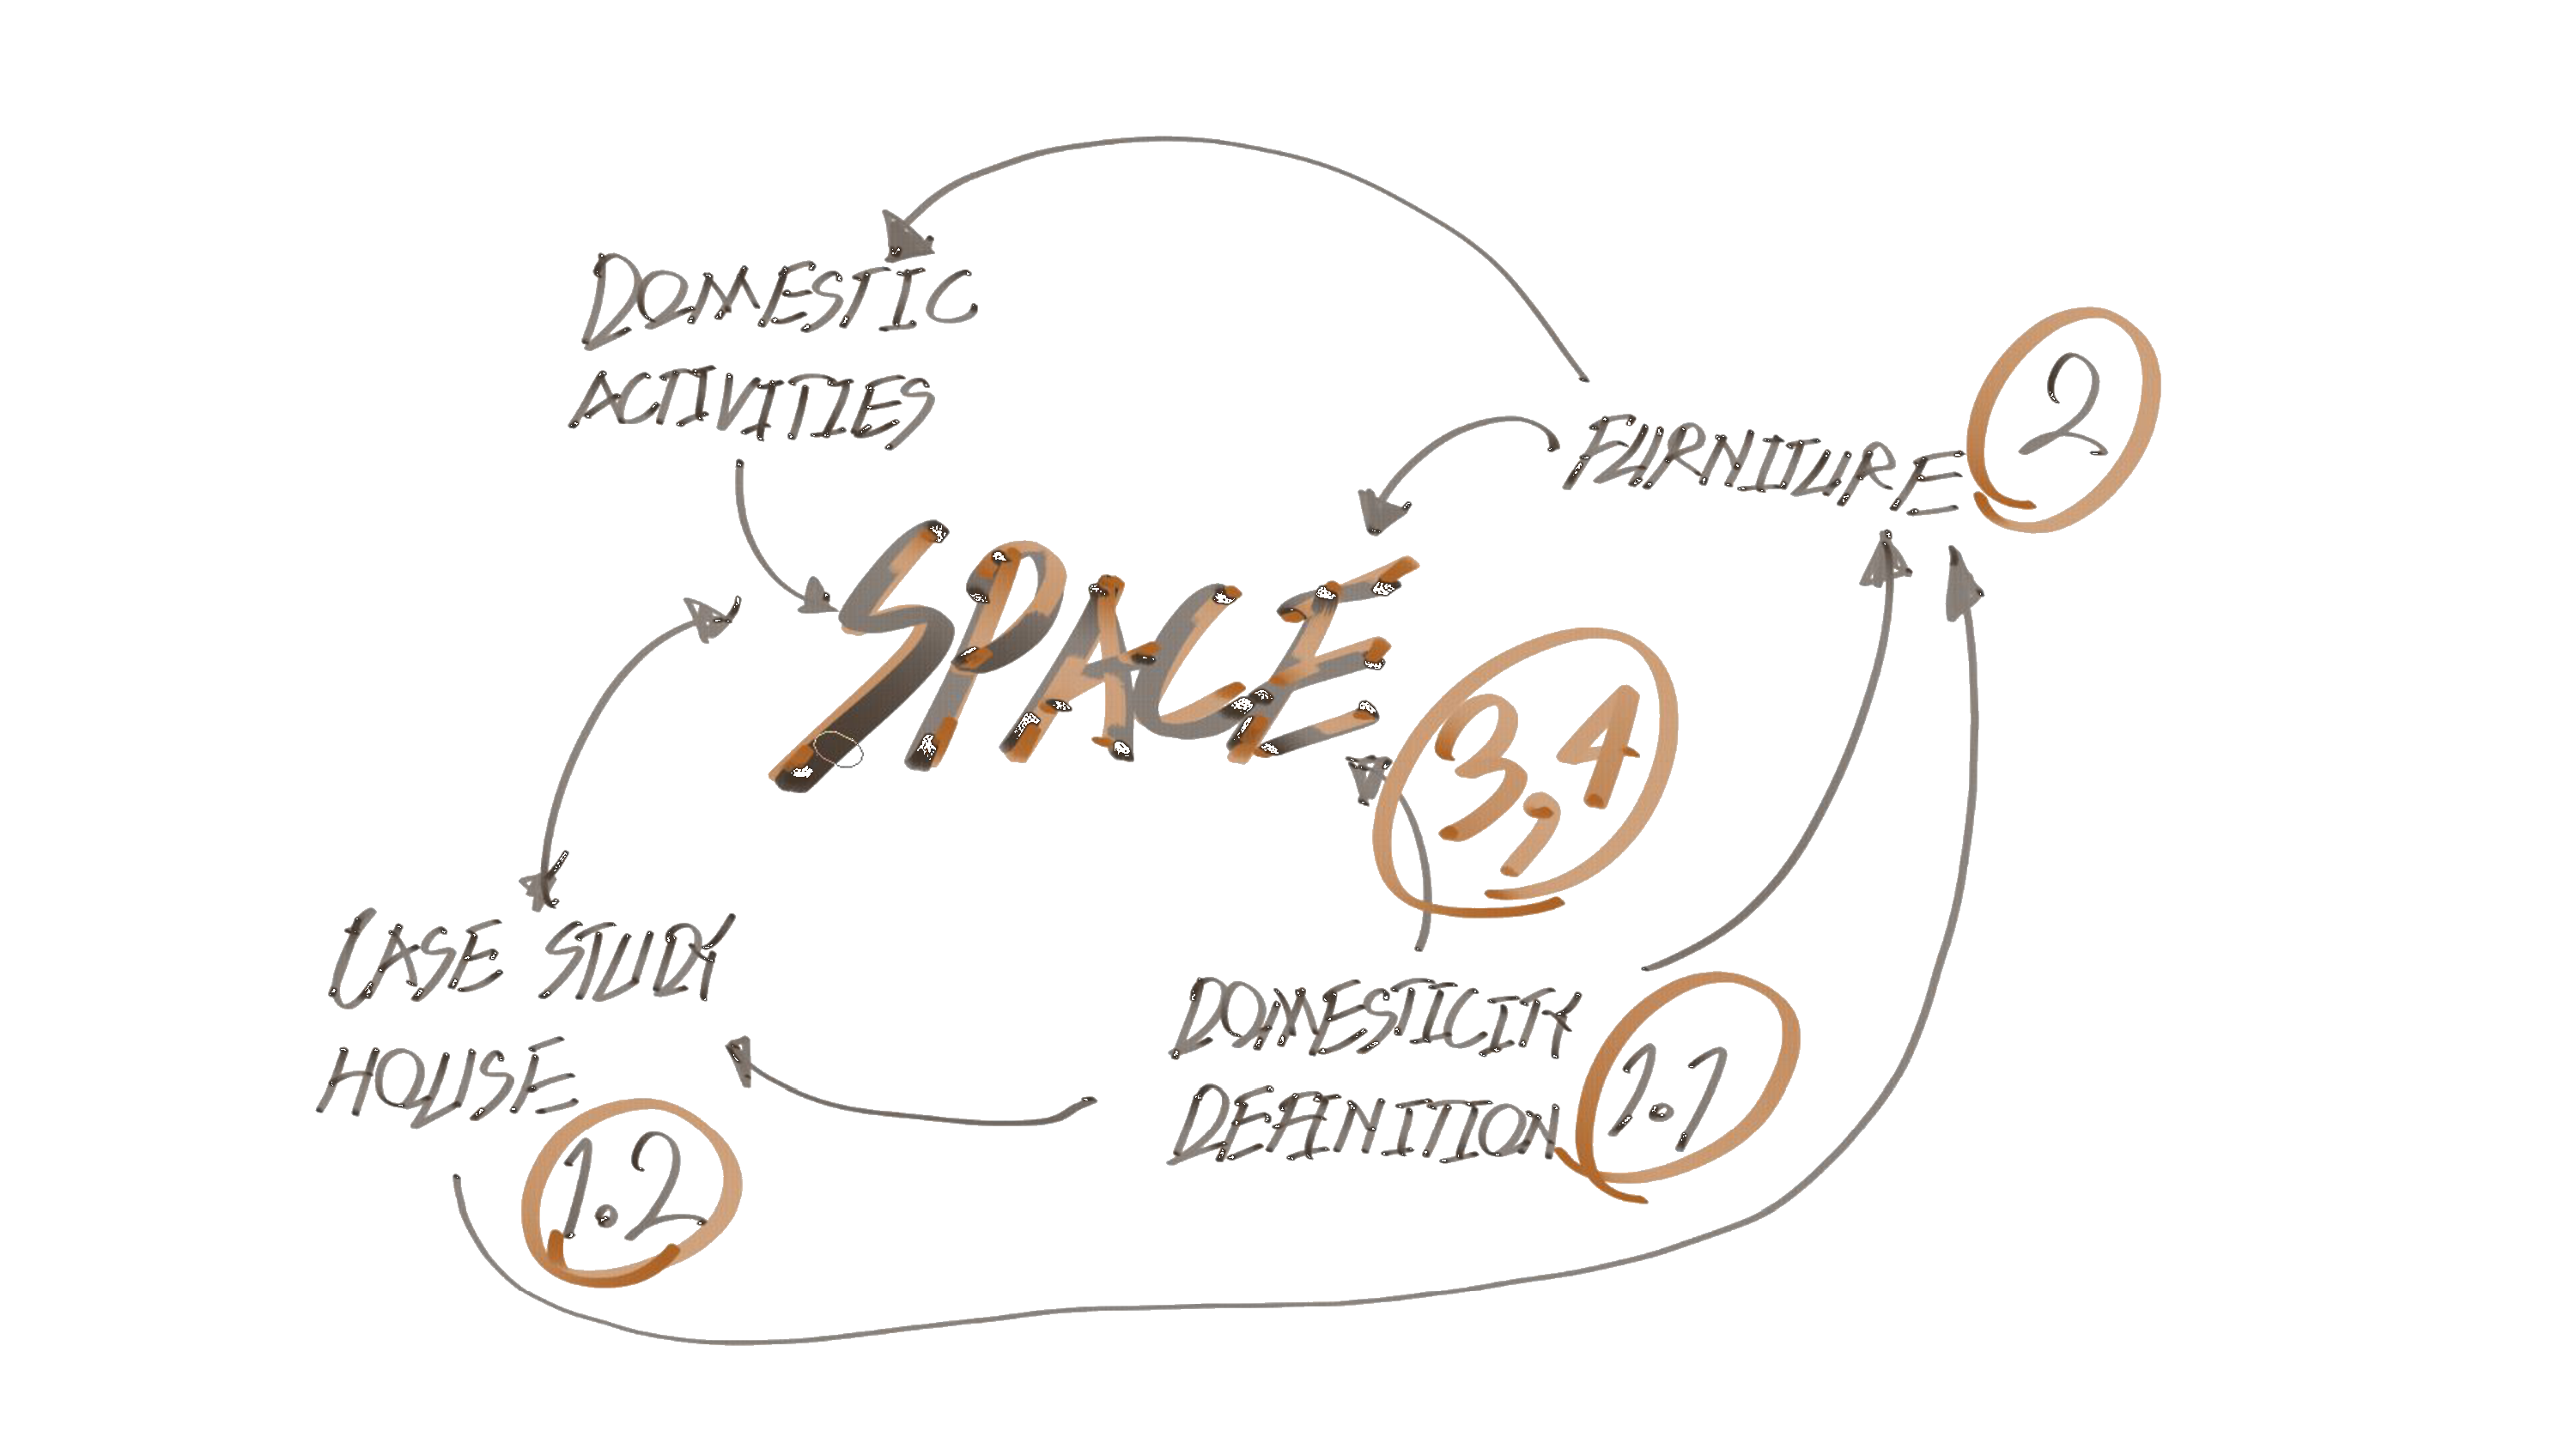 DOMESTIC
ACTIVITIES
FURNITURE 2
SPACE
3,4
CASE STUDY
HOUSE
1.2
DOMESTICITY
DEFINITION
1.1